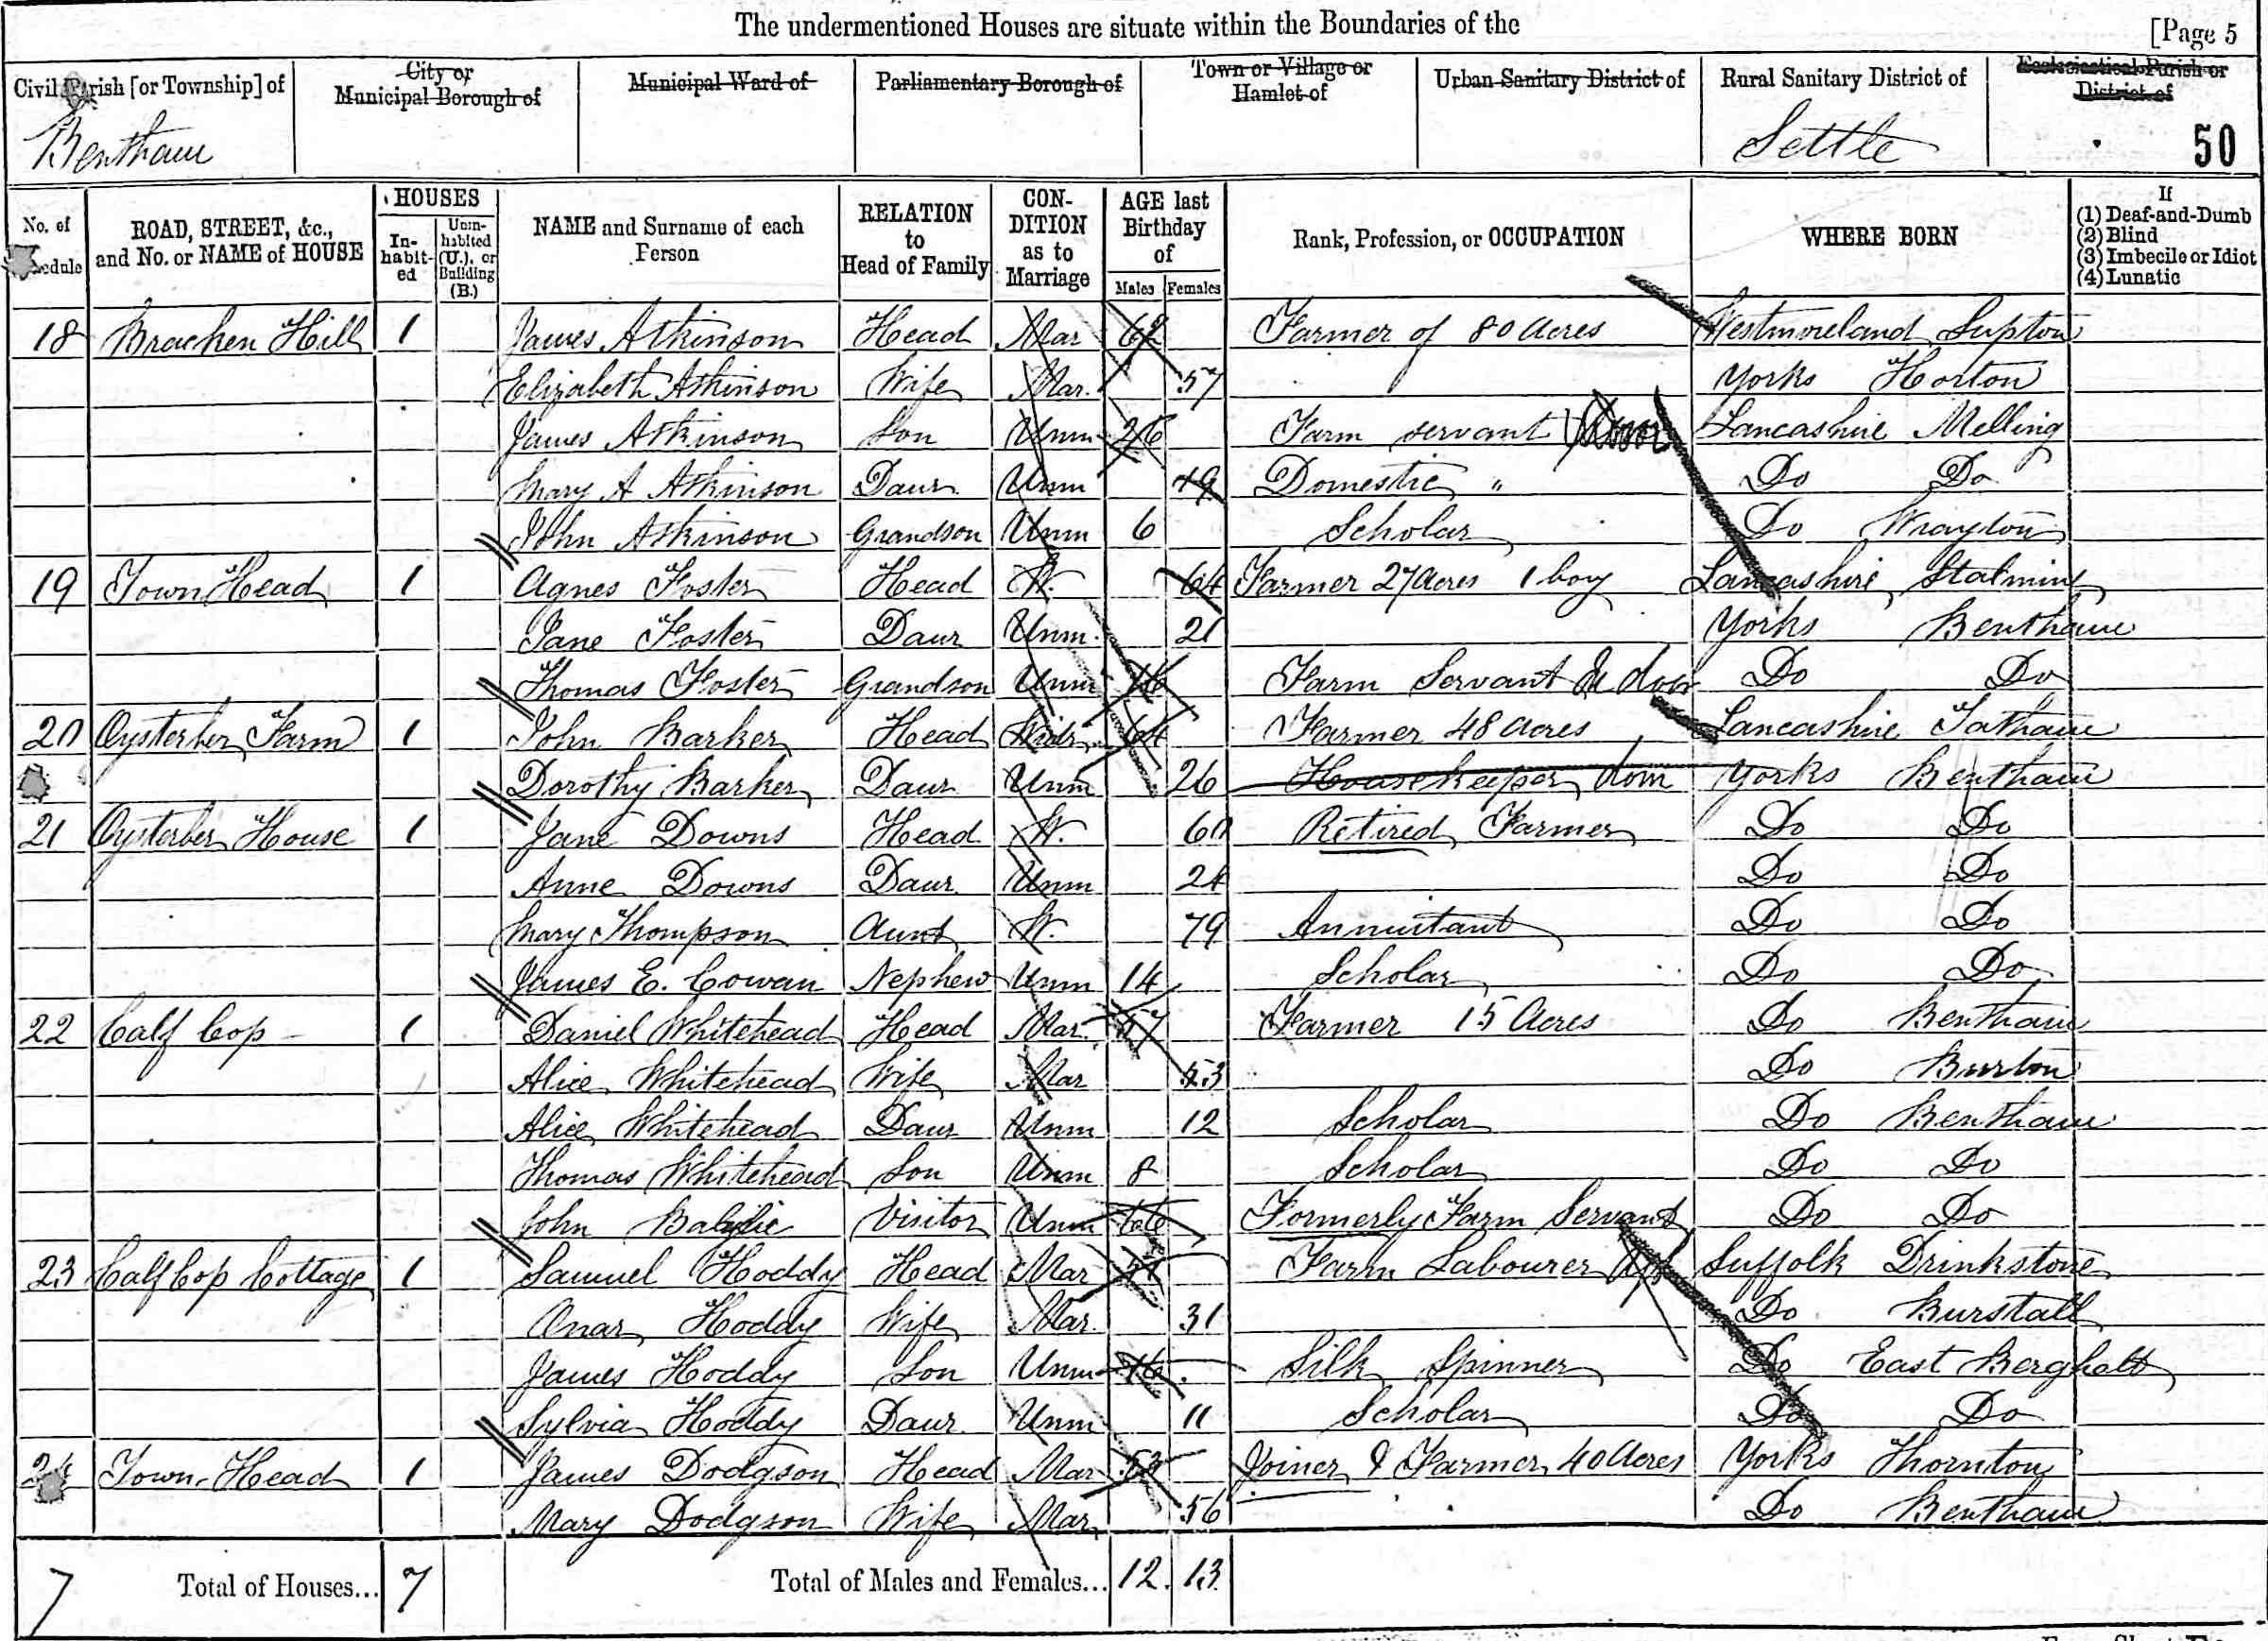 The undermentioned Houses are situate within the Boundaries of the [Page 5
Civil Parish [or Township] of City or Municipal Borough of Municipal Ward of Parliamentary Borough of Town or Village or Hamlet of Urban Sanitary District of Rural Sanitary District of Ecclesiastical Parish or District of
Bentham Settle 50
No. of Schedule ROAD, STREET, &c., and No. or NAME of HOUSE HOUSES Inhabited Uninhabited (U.), or Building (B.) NAME and Surname of each Person RELATION to Head of Family CONDITION as to Marriage AGE last Birthday of Males Females Rank, Profession, or OCCUPATION WHERE BORN If (1) Deaf-and-Dumb (2) Blind (3) Imbecile or Idiot (4) Lunatic
18 Bracken Hill 1 James Atkinson Head Mar 62 Farmer of 80 Acres Westmoreland Lupton
Elizabeth Atkinson Wife Mar. 57 Yorks Horton
James Atkinson Son Unm 26 Farm servant Lancashire Melling
Mary A Atkinson Daur. Unm 19 Domestic " Do Do
John Atkinson Grandson Unm 6 Scholar Do Wrayton
19 Town Head 1 Agnes Foster Head W. 64 Farmer 27 Acres 1 boy Lancashire Stalmine
Jane Foster Daur Unm. 21 Yorks Bentham
Thomas Foster Grandson Unm 16 Farm Servant In door Do Do
20 Oysterber Farm 1 John Barker Head Widr. 64 Farmer 48 Acres Lancashire Tatham
Dorothy Barker Daur Unm 26 Housekeeper dom Yorks Bentham
21 Oysterber House 1 Jane Downs Head W. 60 Retired Farmer Do Do
Anne Downs Daur. Unm 24 Do Do
Mary Thompson Aunt W. 79 Annuitant Do Do
James E. Cowan Nephew Unm 14 Scholar Do Do
22 Calf Cop 1 Daniel Whitehead Head Mar. 57 Farmer 15 Acres Do Bentham
Alice Whitehead Wife Mar 53 Do Burton
Alice Whitehead Daur Unm 12 Scholar Do Bentham
Thomas Whitehead Son Unm 8 Scholar Do Do
John Visitor Unm 66 Formerly Farm Servant Do Do
23 Calf Cop Cottage 1 Samuel Hoddy Head Mar Farm Labourer Suffolk Drinkstone
Onar Hoddy Wife Mar. 31 Do Burstall
James Hoddy Son Unm 16 Silk Spinner Do East Bergholt
Sylvia Hoddy Daur. Unm 11 Scholar Do Do
24 Town Head 1 James Dodgson Head Mar 53 Joiner & Farmer 40 Acres Yorks Thornton
Mary Dodgson Wife Mar. 56 Do Bentham
7 Total of Houses... 7 Total of Males and Females... 12. 13